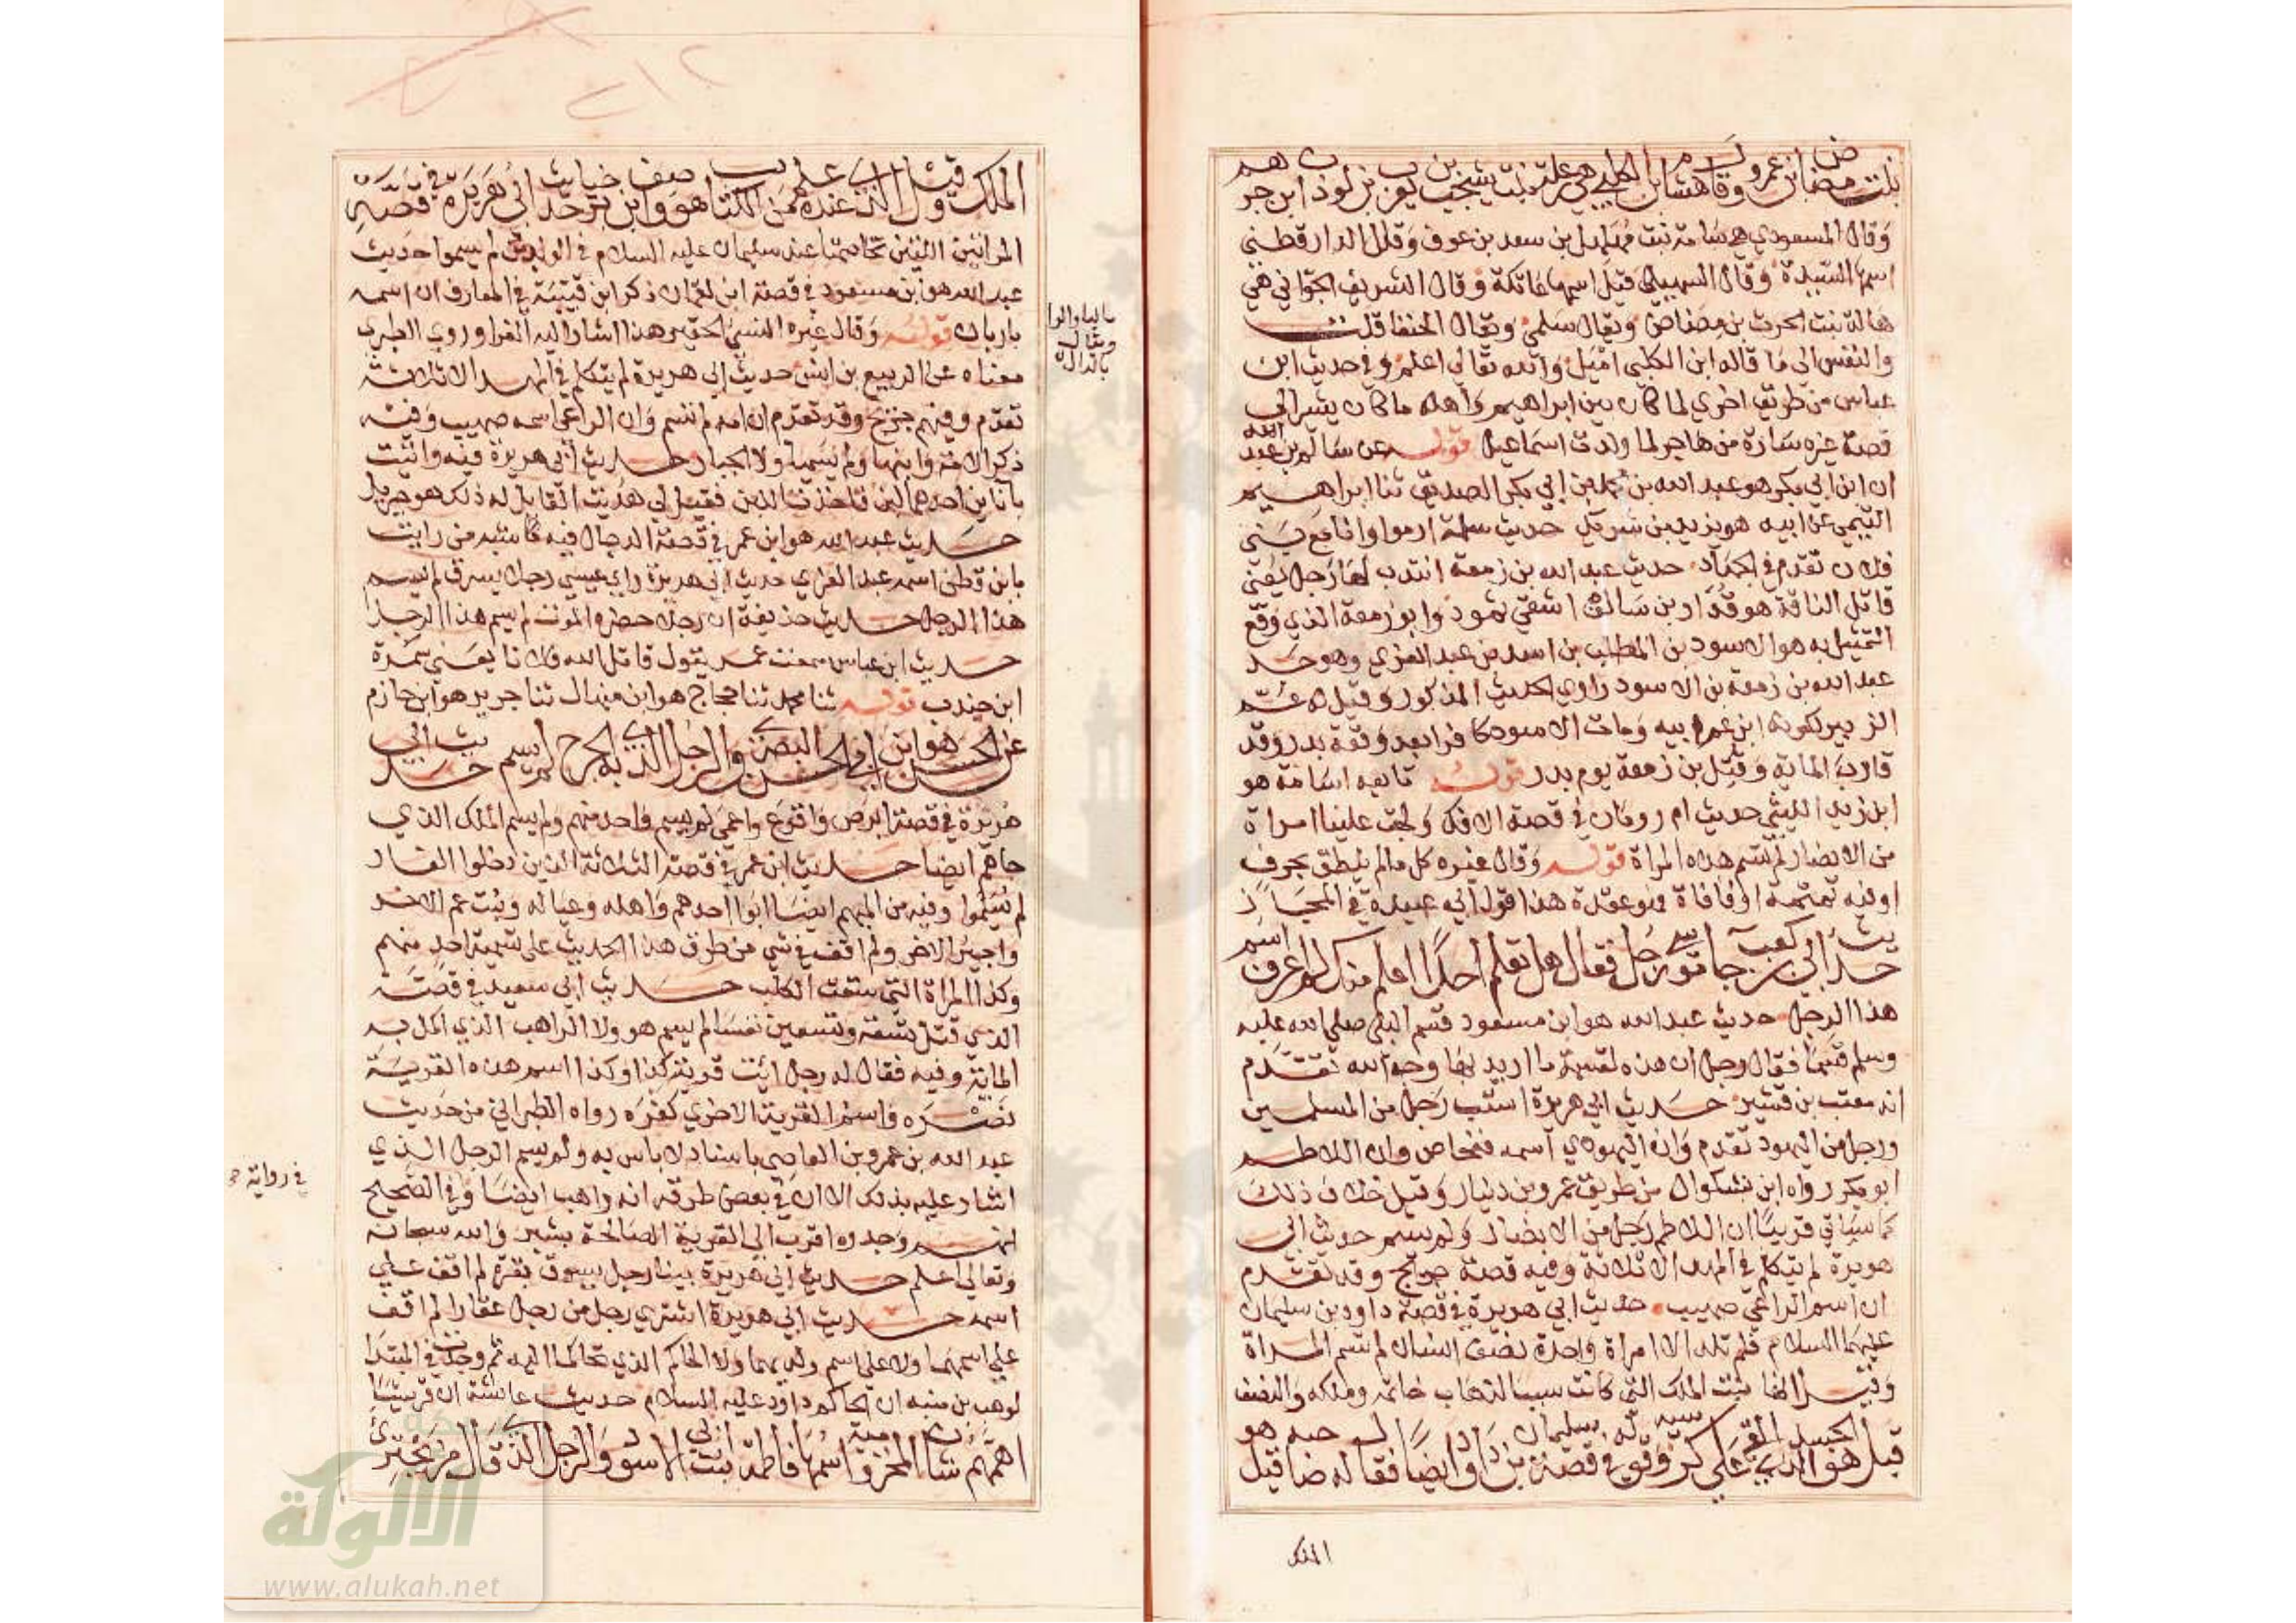 بنت مضاض بن عمرو وقال هشام ابن الكلبي هي رعلة بنت يشجب بن يعرب بن لوذان ابن جرهم
وقال المسعودي هي سامة بنت مهلهل بن سعد بن عوف وقال الدارقطني
اسمها السيدة وقال السهيلي قيل اسمها عاتكة وقال الشريف الجواني هي
هالة بنت الحرث بن مضاض ويقال سلمى ويقال الحنفا قلت
والنفس الى ما قاله ابن الكلبي اميل والله تعالى اعلم وفي حديث ابن
عباس من طريق اخرى لما كان بين ابراهيم واهله ما كان يشير الى
قصة غيره سارة من هاجر لما ولدت اسماعيل قوله عن سالم بن عبد الله
ان ابن ابي بكر هو عبد الله بن محمد بن ابي بكر الصديق ثنا ابراهيم
التيمي عن ابيه هو يزيد بن شريك حديث سلمة ارموا وانا مع بني
فلان تقدم في الجهاد حديث عبد الله بن زمعة انتدب لها رجل يعني
قاتل الناقة هو قدار بن سالف اشقى ثمود وابو زمعة الذي وقع
التمثيل به هو الاسود بن المطلب بن اسد بن عبد العزى وهو جد
عبد الله بن زمعة بن الاسود راوي الحديث المذكور وقيل له عم
الزبير لكونه ابن عم ابيه ومات الاسود كافرا بعد وقعة بدر وقد
قارب المائة وقتل بن زمعة يوم بدر قوله تابعه اسامة هو
ابن زيد الليثي حديث ام رومان في قصة الافك ولجت علينا امراة
من الانصار لم تسم هذه المراة قوله وقال غيره كل مالم ينطق بحرف
او فيه تمتمة او فافاة فهو عقدة هذا قول ابي عبيدة في المجاز
حديث ابي بن كعب جا موسى رجل فقال هل تعلم احدا اعلم منك لم اعرف اسم
هذا الرجل حديث عبد الله هو ابن مسعود قسم النبي صلى الله عليه
وسلم قسما فقال رجل ان هذه لقسمة ما اريد بها وجه الله تقدم
انه معتب بن قشير حديث ابي هريرة استب رجل من المسلمين
ورجل من اليهود تقدم وان اليهودي اسمه فنحاص وان اللاطم
ابو بكر رواه ابن بشكوال من طريق عمرو بن دينار وقيل خلاف ذلك
كما سياتي قريبا ان اللاطم رجل من الانصار ولم يسم حديث ابي
هريرة لم يتكلم في المهد الا ثلاثة وفيه قصة جريج وقد تقدم
ان اسم الراعي صهيب حديث ابي هريرة في قصة داود بن سليمان
عليهما السلام فلم تلد الا امراة واحدة نصف انسان لم تسم المراة
وقيل انها بنت الملك التي كانت سببا لذهاب خاتمه وملكه والنصف
قيل هو الجسد الذي القي على كرسيه وقوله في قصة سليمان بن داود ايضا فقال له صاحبه قيل هو
الملك
الملك وقيل الذي عنده علم من الكتاب وهو اصف ابن برخيا حديث ابي هريرة في قصة
المراتين اللتين تحاكمتا عند سليمان عليه السلام في الولدين لم يسموا حديث
عبد الله هو بن مسعود في قصة ابن لقمان ذكر ابن قتيبة في المعارف ان اسمه
باربان قوله وقال غيره النسي الحقير هذا اشار اليه الفرا وروى الطبري
بالبا والرا
ويقال
بالدال
معناه عن الربيع بن انس حديث ابي هريرة لم يتكلم في المهد الا ثلاثة
تقدم وفيهم جريج وقد تقدم ان امه لم تسم وان الراعي اسمه صهيب وفيه
ذكر الامة وابنها ولم يسميا ولا الجبار حديث ابي هريرة فيه واتيت
باناين احدهما لبن فاخذت اللبن فقيل لي هديت القايل له ذلك هو جبريل
حديث عبد الله هو ابن عمر في قصة الدجال فيه كاشبه من رايت
بابن قطن اسمه عبد العزى حديث ابي هريرة راى عيسى رجلا يسرق لم يسم
هذا الرجل حديث حذيفة ان رجلا حضره الموت لم يسم هذا الرجل
حديث ابن عباس سمعت عمر يقول قاتل الله فلانا يعني سمرة
ابن جندب قوله ثنا محمد ثنا حجاج هو ابن منهال ثنا جرير هو ابن حازم
عن الحسن هو ابن ابي الحسن البصري والرجل الذي به الجرح لم يسم حديث ابي
هريرة في قصة ابرص واقرع واعمى لم يسم واحد منهم ولم يسم الملك الذي
جاهم ايضا حديث ابن عمر في قصة الثلاثة الذين دخلوا الغار
لم يسموا وفيه من المبهم ايضا ابوا احدهم واهله وعياله وبنت عم الاخر
واجير الاخر ولم اقف في شي من طرق هذا الحديث على تسمية احد منهم
وكذا المراة التي سقت الكلب حديث ابي سعيد في قصة
الذي قتل تسعة وتسعين نفسا لم يسم هو ولا الراهب الذي اكمل به
الماية وفيه فقال له رجل ائت قرية كذا وكذا اسم هذه القرية
نصره واسم القرية الاخرى كفره رواه الطبراني من حديث
عبد الله بن عمرو بن العاصي باسناد لا باس به ولم يسم الرجل الذي
اشار عليه بذلك الا ان في بعض طرقه انه راهب ايضا وفي الصحيح
في رواية
انهم وجدوه اقرب الى القرية الصالحة بشبر والله سبحانه
وتعالى اعلم حديث ابي هريرة بينا رجل يسوق بقرة لم اقف على
اسمه حديث ابي هريرة اشترى رجل من رجل عقارا لم اقف
على اسمهما ولا على اسم ولديهما ولا الحاكم الذي تحاكما اليه ثم وجدت في المبتدا
لوهب بن منبه ان الحاكم داود عليه السلام حديث عايشة ان قريشا
اهمهم شان المخزومية اسمها فاطمة بنت ابي الاسود والرجل الذي قال من يجترئ
الالوكة
شبكة
www.alukah.net